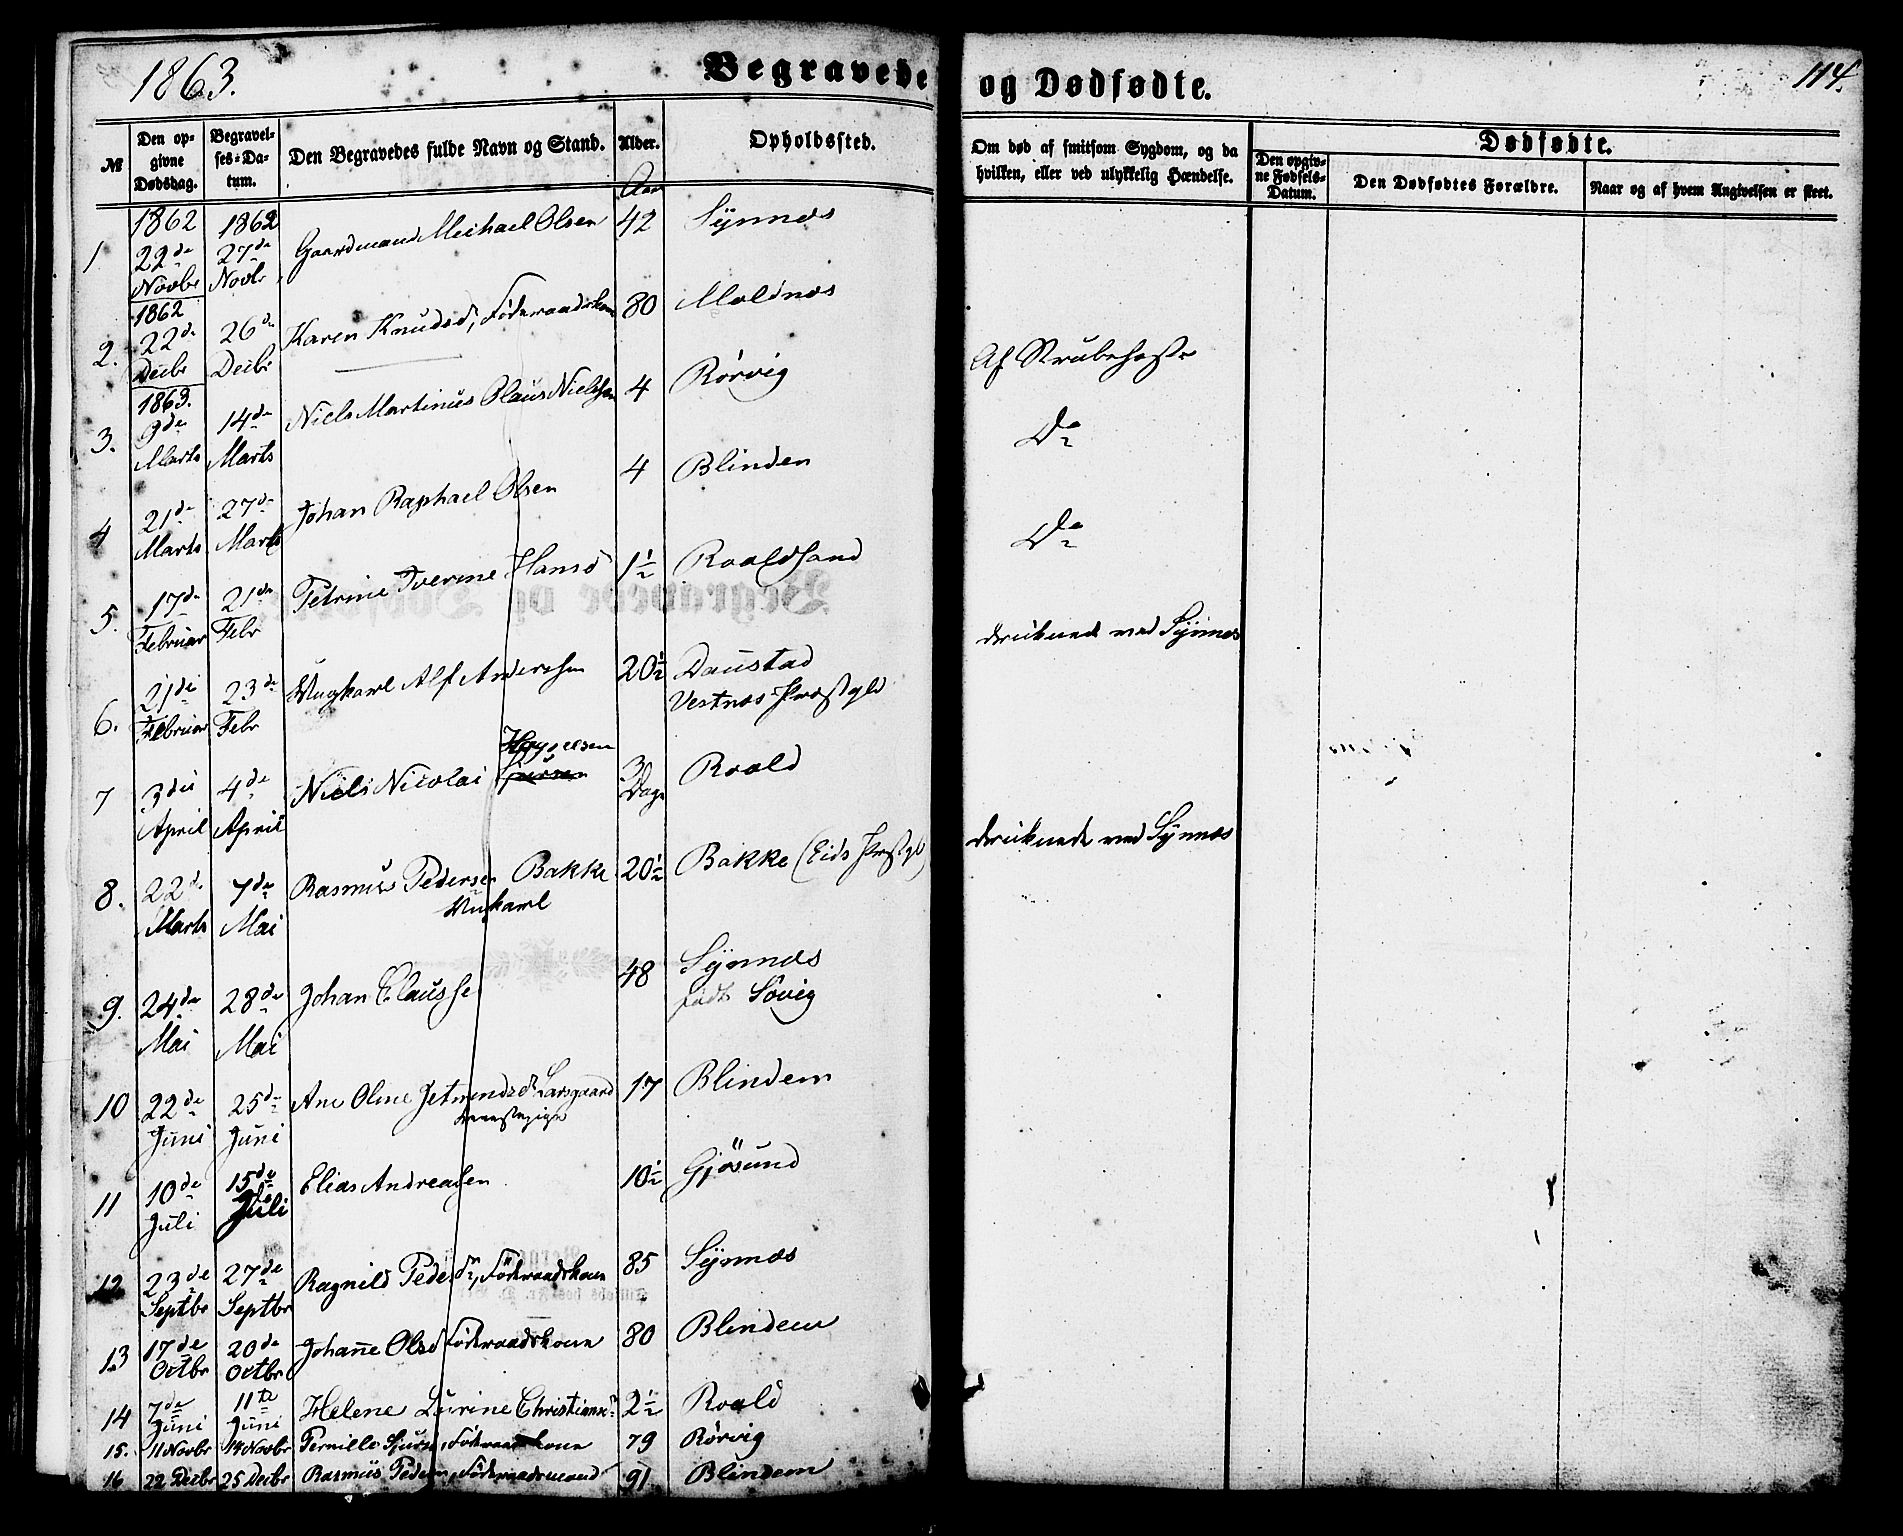 1863.
Begravede og Dødfødte.
114.
№
Den op-
givne
Dødsdag.
Begravel-
ses-Da-
tum.
Den Begravedes fulde Navn og Stand.
Alder.
Opholdssted.
Om død af smitsom Sygdom, og da
hvilken, eller ved ulykkelig Hændelse.
Dødfødte.
Den opgiv-
ne Fødsels-
Datum.
Den Dødfødtes Forældre.
Naar og af hvem Angivelsen er skeet.
Aar
1862 1862
1 22de Novbr 27de Novbr Gaardmand Michael Olsen 42 Synnæs
1862
2. 22de Decbr 26de Decbr Karen Knudsd, Føderaadskone 80 Moldnæs
1863.
3. 9de Marts 14de Marts Niels Martinus Olaus Nielssen 4 Rørvig Af Strubehoste
4 21de Marts 27de Marts Johan Raphael Olsen 4 Blinden Do
5. 17de Februar 21de Febr Petrine Iverine Hansd 1½ Roaldsand Do
6. 21de Februar 23de Febr Ungkarl Alf Anderssen 20½ Daustad
Vestnæs Præstgld
druknede ved Synnæs
7 3die April 4de April Niels Nicolai 3 Dage Roald
8. 22de Marts 7de Mai Rasmus Pedersen Bakke 20½ Bakke (Eids Præstgl)
Ungkarl
druknede ved Synnæs
9. 24de Mai 28de Mai Johan Claussen 48 Synnæs
født Søvig
10 22de Juni 25de Juni Ane Oline Jetmundsd Larsgaard 17 Blindem
11 10de Juli 15de Juli Elias Andreassen 10½ Gjøsund
12 23de Septbr 27de Septbr Ragnild Pedersdr, Føderaadskone 85 Synnæs
13 17de Octbr 20de Octbr Johanne Olsd Føderaadskone 80 Blindem
14 7de Juni 11te Juni Helene Laurine Christiansd 2½ Roald
15. 11 Novbr 14 Novbr Pernille Sjursd, Føderaadskone 79 Rørvig
16 22 Decbr 25 Decbr Rasmus Pedersen, Føderaadsmand 91 Blindem